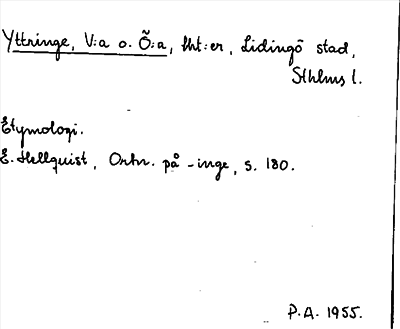 Yttringe, V:a o. Ö:a, lht:er, Lidingö stad,
Sthlms l.
Etymologi.
E. Hellquist, Ortn. på -inge, s. 180.
P.A. 1955.